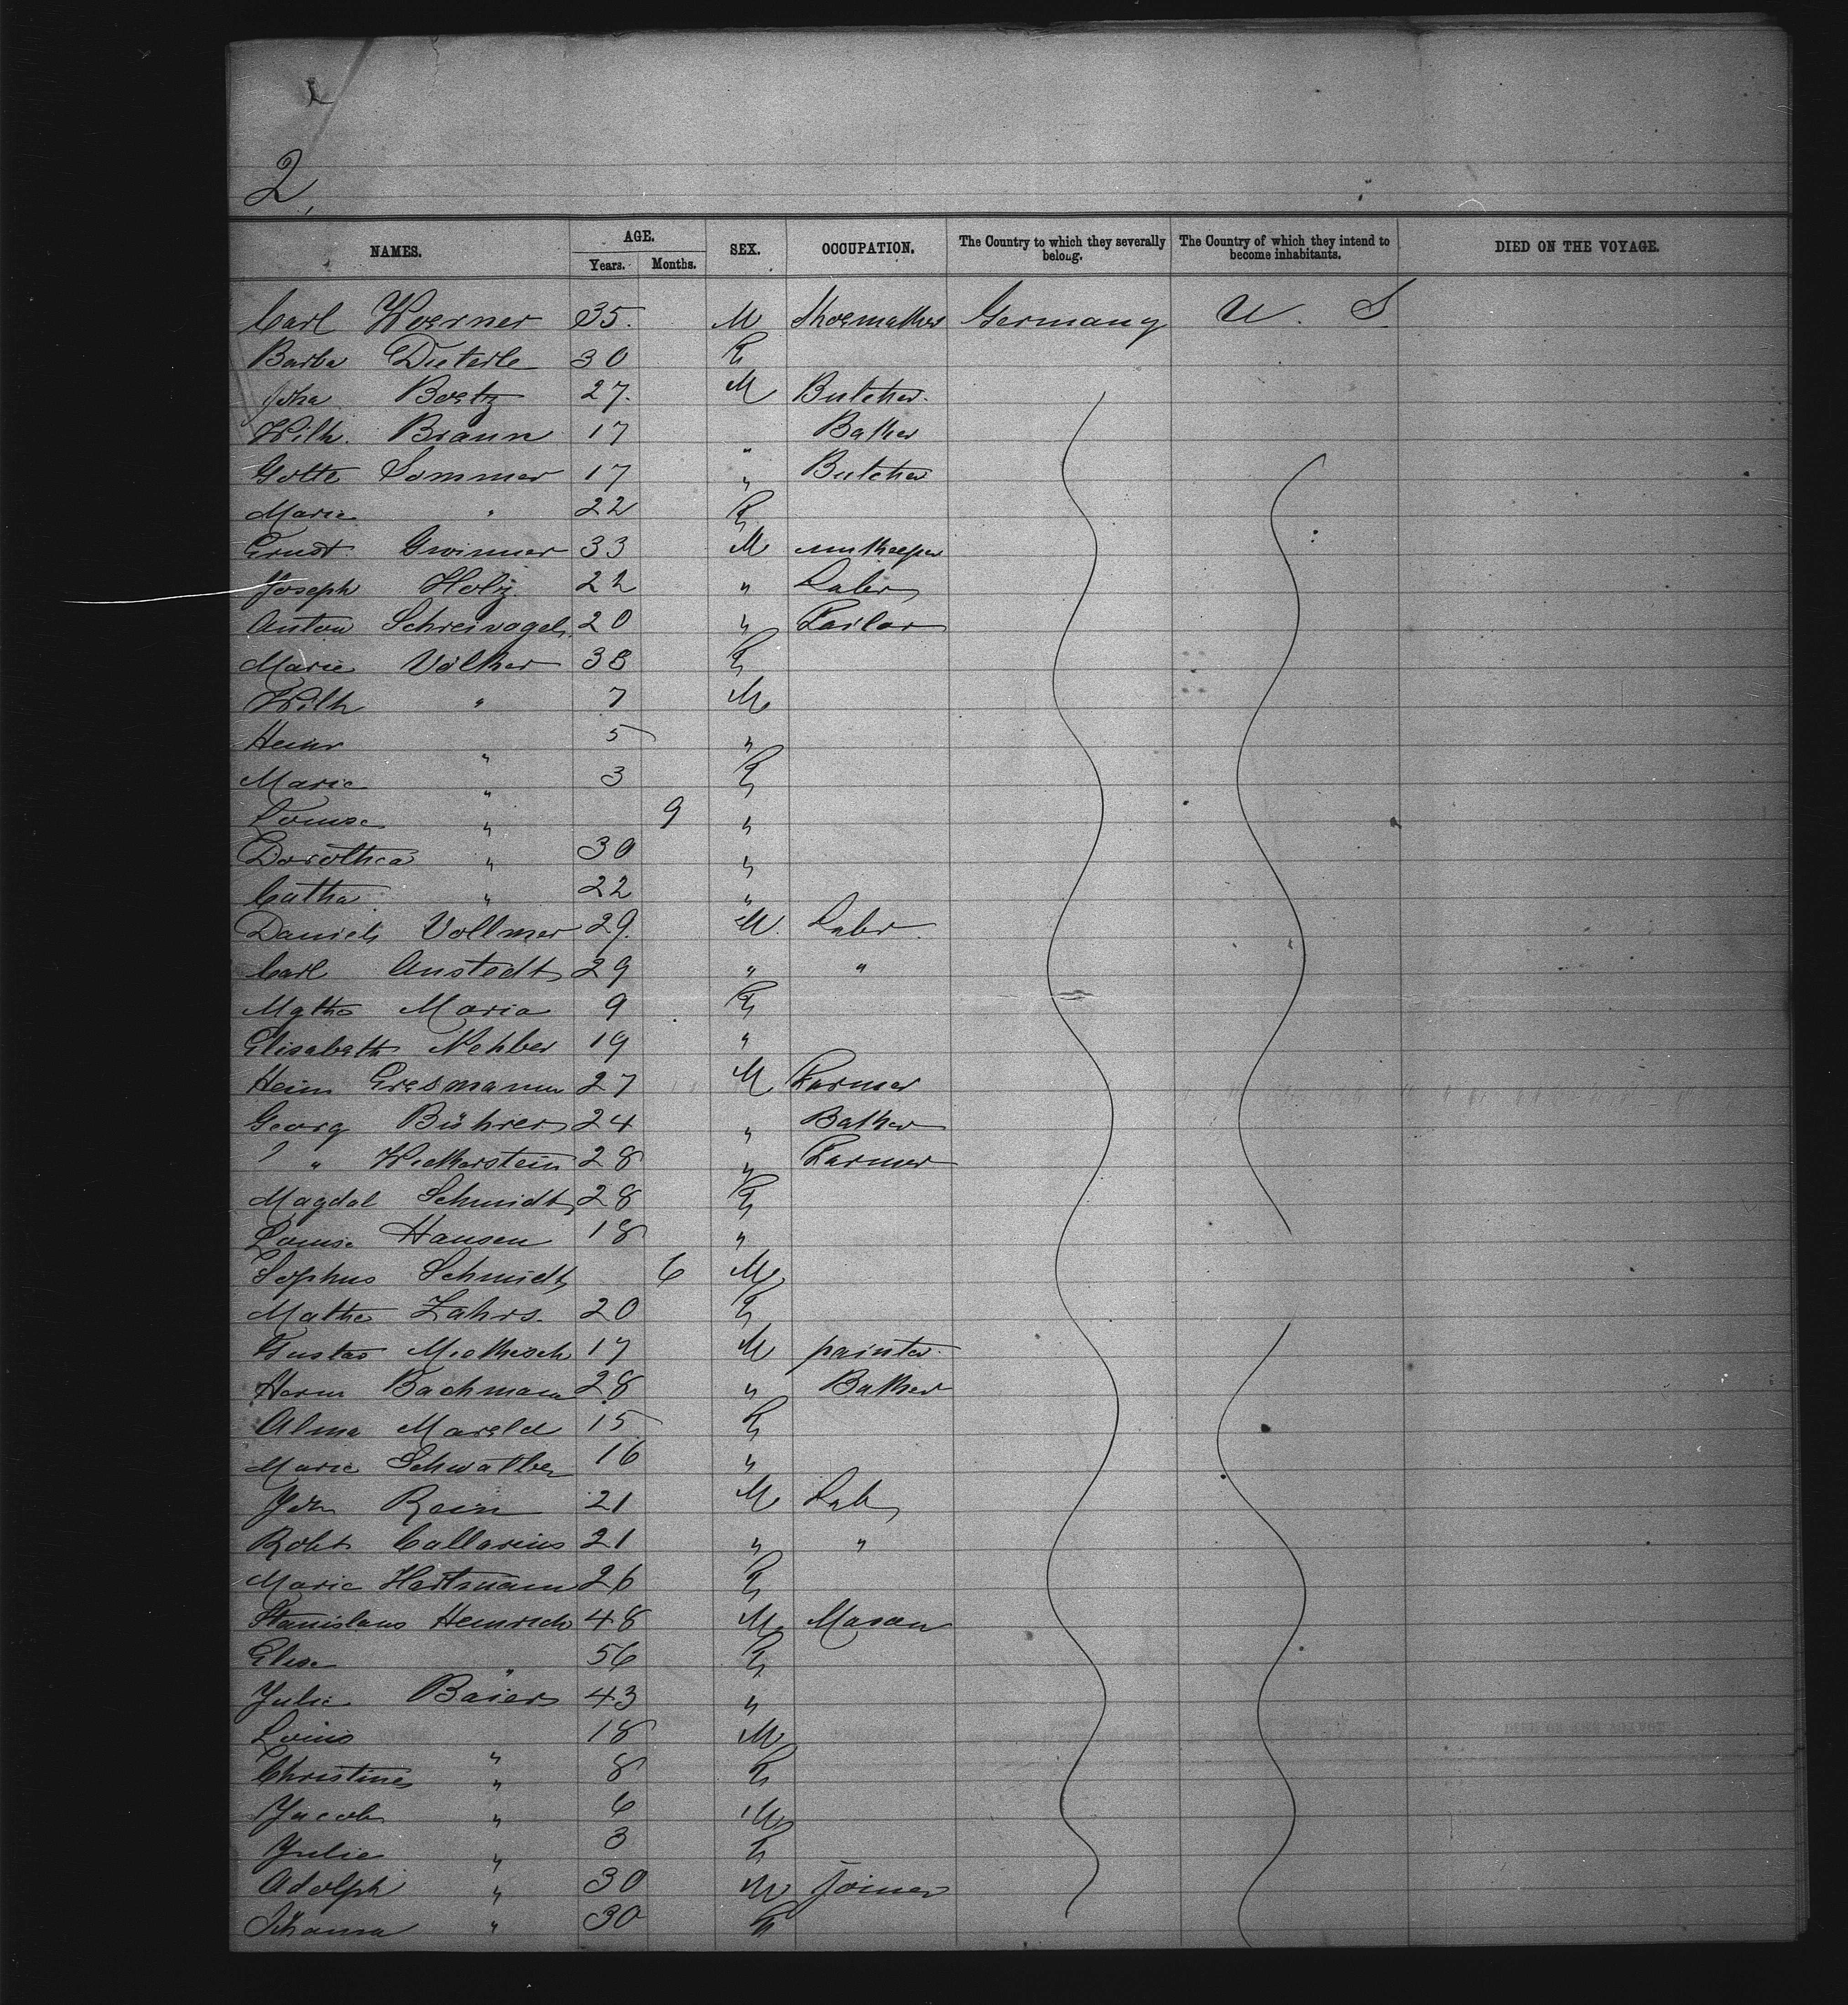 2.
NAMES. AGE. SEX. OCCUPATION. The Country to which they severally belong. The Country of which they intend to become inhabitants. DIED ON THE VOYAGE.
Years. Months.
Carl Woerner 35. M Shoemaker Germany U. S.
Barba Dieterle 30 F
Joha Boetz 27. M Butcher
Wilh. Braun 17 " Baker
Gotte Sommer 17 " Butcher
Marie " 22 F
Ernst Gwinner 33 M innkeeper
Joseph Holz 22 " Labr
Anton Schreivogel 20 " Tailor
Marie Völker 38 F
Wilh " 7 M
Heinr " 5 "
Marie " 3 F
Louise " 9 "
Dorothea " 30 "
Catha " 22 "
Daniel Vollmer 29. M. Labr.
Carl Anstedt 29 " "
Mgtha Maria 9 F
Elisabeth Nehber 19 "
Heinr Gresmann 27 M Farmer
Georg Bührer 24 " Baker
" Wickerstein 28 " Farmer
Magdal Schmidt 28 F
Louise Hansen 18 "
Sophus Schmidt 6 M
Mathe Zahrs. 20 F
Gustav 17 M painter
Herm Bachmann 28 " Baker
Alma Mareld 15 F
Marie 16 "
Joh Rein 21 M Lab
Robt Callarius 21 " "
Marie Hartmann 26 F
Stanislaus Heinrich 48 M Mason
Elise " 56 F
Julie Baier 43 "
Louis " 18 M
Christine " 8 F
Jacob " 6 M
Julie " 3 F
Adolph " 30 M joiner
Johanna " 30 F